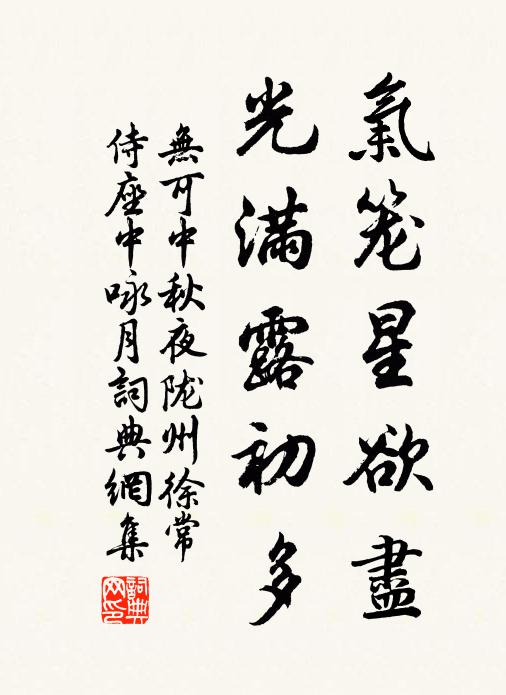 氣笼星欲盡
光滿露初多
無可中秋夜陇州徐常
侍座中咏月詞典網集
詞典
网印